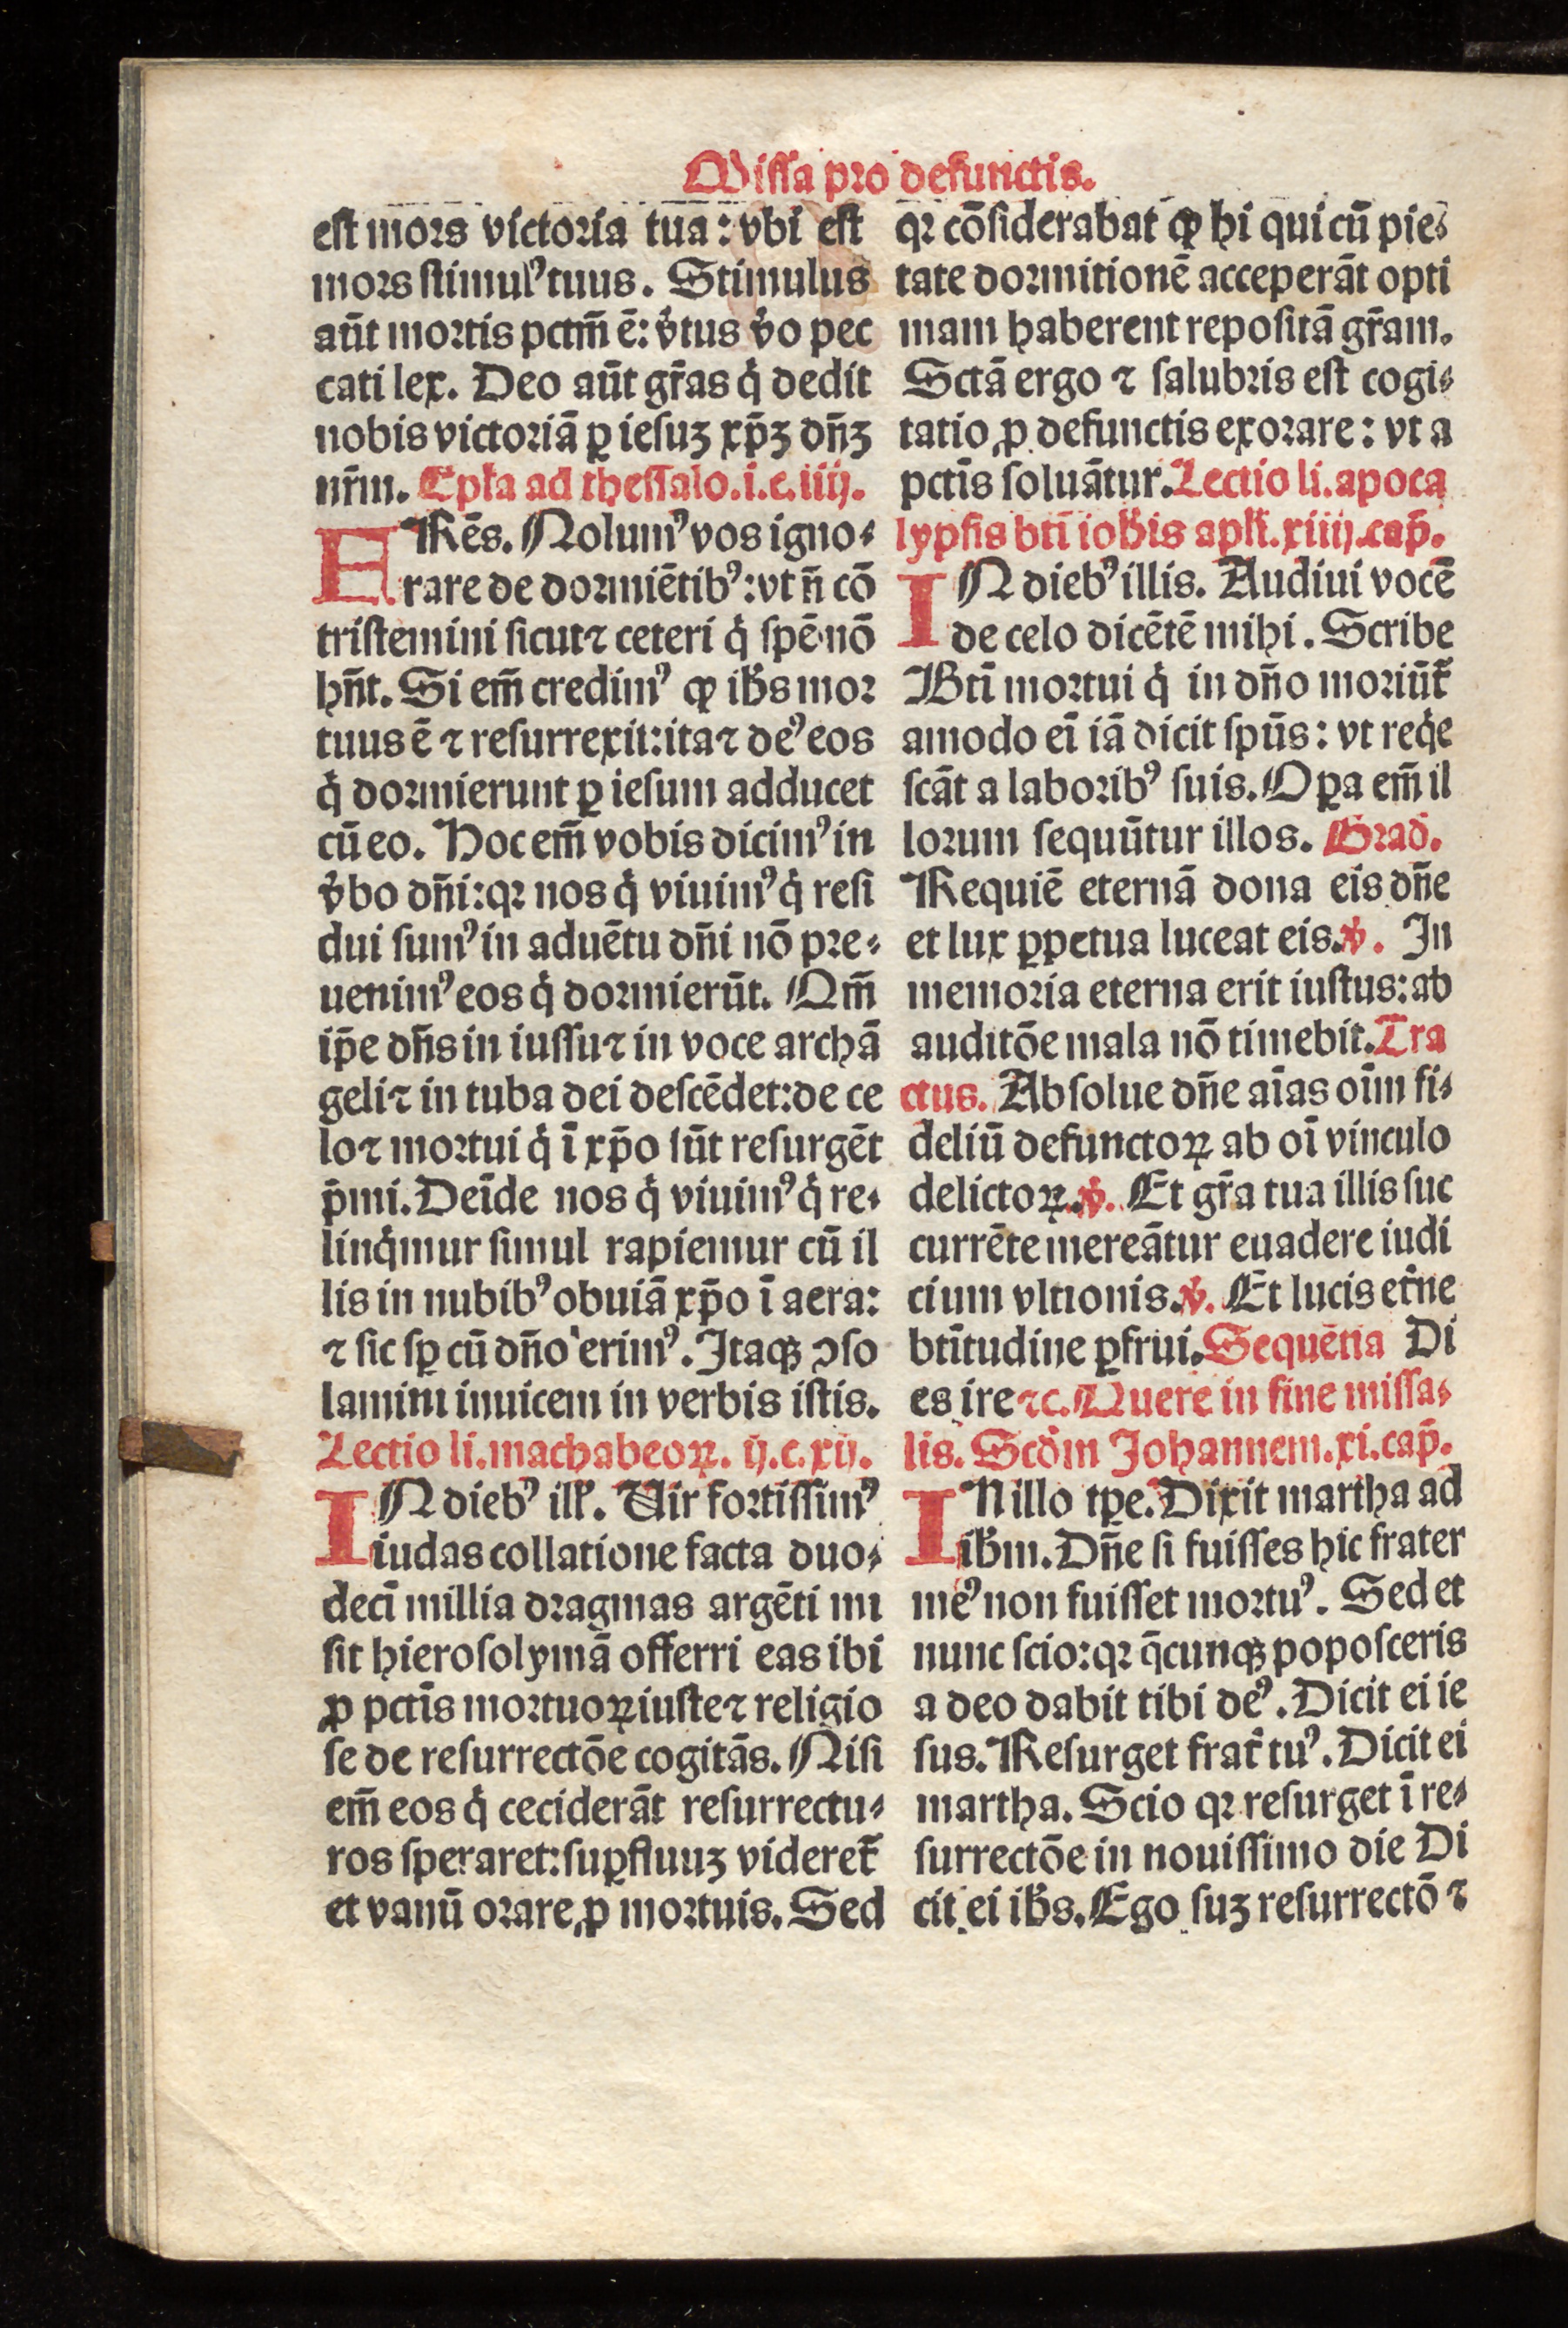 Missa pro defunctis.
est mors victoria tua: vbi est
mors stimulꝰ tuus. Stimulus
aūt mortis pctm̄ ē: v̓tus v̓o pec
cati lex. Deo aūt gr̄as q̓ dedit
nobis victoriā ꝑ iesuꝫ xp̄ꝫ dn̄ꝫ
nr̄m. Epl̓a ad thessalo.i.c.iiij.
FRēs. Nolumꝰ vos igno⸗
rare de dormiētibꝰ: vt n̄ cō
tristemini sicut ⁊ ceteri q̓ spē nō
hn̄t. Si em̄ credimꝰ ꝙ ih̓s mor
tuus ē ⁊ resurrexit: ita ⁊ deꝰ eos
q̓ dormierunt ꝑ iesum adducet
cū eo. Hoc em̄ vobis dicimꝰ in
v̓bo dn̄i: qꝛ nos q̓ viuimꝰ q̓ resi
dui sumꝰ in aduētu dn̄i nō pre⸗
uenimꝰ eos q̓ dormierūt. Qm̄
ip̄e dn̄s in iussu ⁊ in voce archā
geli ⁊ in tuba dei descēdet: de ce
lo ⁊ mortui q̓ ī xp̄o sūt resurgēt
p̄mi. Deīde nos q̓ viuimꝰ q̓ re⸗
linq̓mur simul rapiemur cū il
lis in nubibꝰ obuiā xp̄o ī aera:
⁊ sic sꝑ cū dn̄o erimꝰ. Itaqꝫ ↄso
lamini inuicem in verbis istis.
Lectio li. machabeoꝝ. ij.c.xij.
IN diebꝰ ill̓. Uir fortissimꝰ
iudas collatione facta duo⸗
decī millia dragmas argēti mi
sit hierosolymā offerri eas ibi
ꝓ pctīs mortuoꝝ iuste ⁊ religio
se de resurrectōe cogitās. Nisi
em̄ eos q̓ ceciderāt resurrectu⸗
ros speraret: suꝑfluuꝫ videret̄
et vanū orare ꝓ mortuis. Sed
qꝛ cōsiderabat ꝙ hi qui cū pie⸗
tate dormitionē acceperāt opti
mam haberent repositā gr̄am.
Sctā ergo ⁊ salubris est cogi⸗
tatio ꝓ defunctis exorare: vt a
pctīs soluātur. Lectio li. apoca
lypsis btī ioh̓is apl̓i. xiiij. cap̄.
IN diebꝰ illis. Audiui vocē
de celo dicētē mihi. Scribe
Btī mortui q̓ in dn̄o moriūt̄
amodo eī iā dicit sp̄us: vt req̓e
scāt a laboribꝰ suis. Oꝑa em̄ il
lorum sequūtur illos. Grad.
Requiē eternā dona eis dn̄e
et lux ꝑpetua luceat eis. ℣. In
memoria eterna erit iustus: ab
auditōe mala nō timebit. Tra
ctus. Absolue dn̄e aīas oīm fi⸗
deliū defunctoꝝ ab oī vinculo
delictoꝝ. ℣. Et gr̄a tua illis suc
currēte mereātur euadere iudi
cium vltionis. ℣. Et lucis et̓ne
btītudine ꝑfrui. Sequētia Di
es ire ⁊c. Quere in fine missa⸗
lis. Scd̓m Johannem. xi. cap̄.
IN illo tꝑe. Dixit martha ad
ih̓m. Dn̄e si fuisses hic frater
meꝰ non fuisset mortuꝰ. Sed et
nunc scio: qꝛ q̄cunqꝫ poposceris
a deo dabit tibi deꝰ. Dicit ei ie
sus. Resurget frat̓ tuꝰ. Dicit ei
martha. Scio qꝛ resurget ī re⸗
surrectōe in nouissimo die Di
cit ei ih̓s. Ego suꝫ resurrectō ⁊